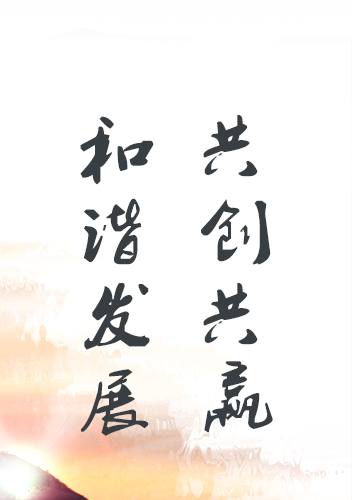 共创共赢
和谐发展